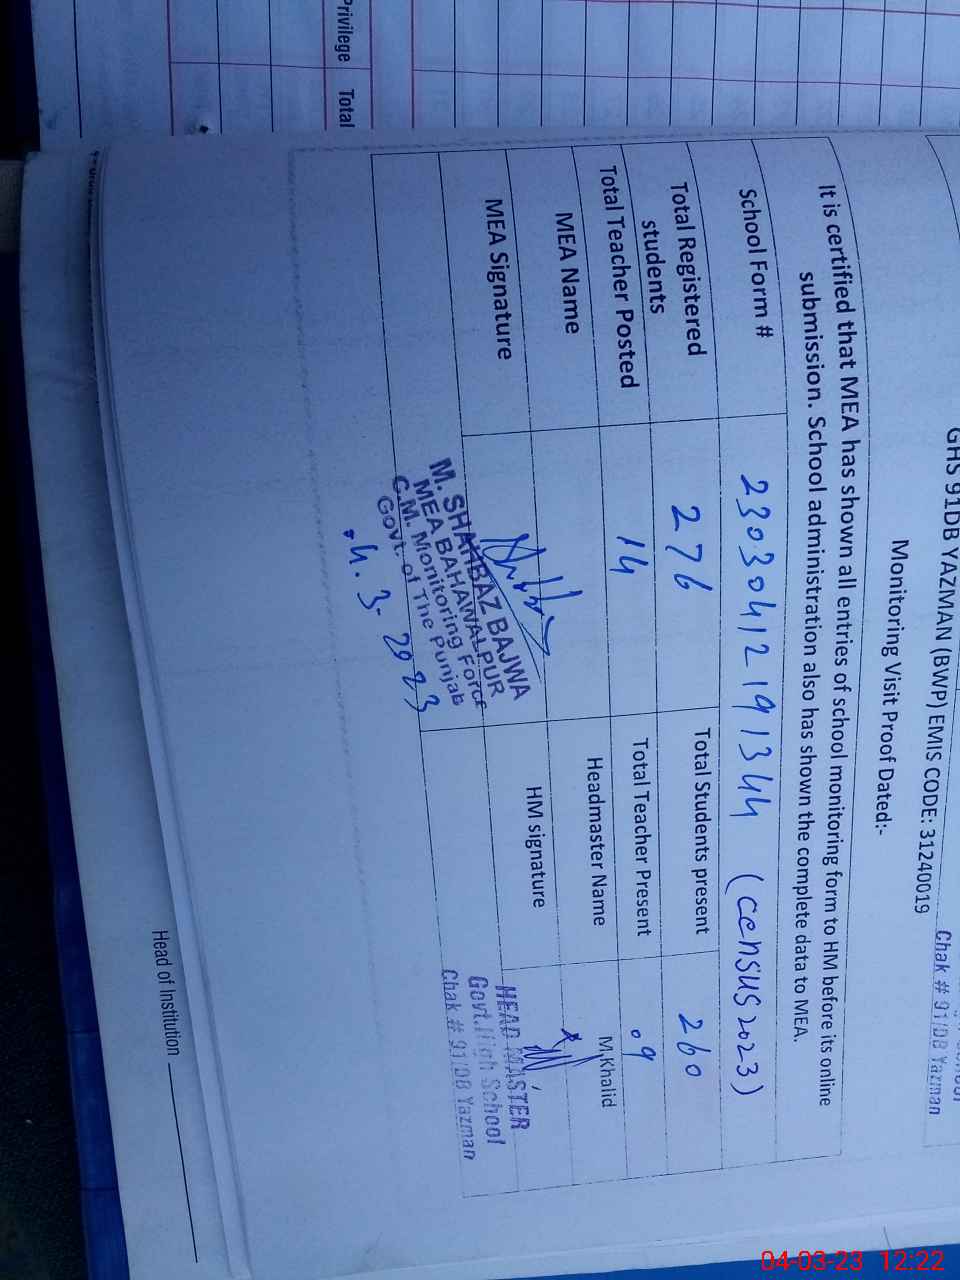 Privilege Total
GHS 91DB YAZMAN (BWP) EMIS CODE: 31240019
Chak # 91/DB Yazman
Monitoring Visit Proof Dated:-
It is certified that MEA has shown all entries of school monitoring form to HM before its online
submission. School administration also has shown the complete data to MEA.
School Form # 23030412191344 (census 2023)
Total Registered students 276 Total Students present 260
Total Teacher Posted 14 Total Teacher Present 09
MEA Name Headmaster Name M.Khalid
MEA Signature HM signature
M. SHAHBAZ BAJWA
MEA BAHAWALPUR
C.M. Monitoring Force
Govt. of The Punjab
4.3.2023
HEAD MASTER
Govt.High School
Chak # 91/DB Yazman
Head of Institution
04-03-23 12:22